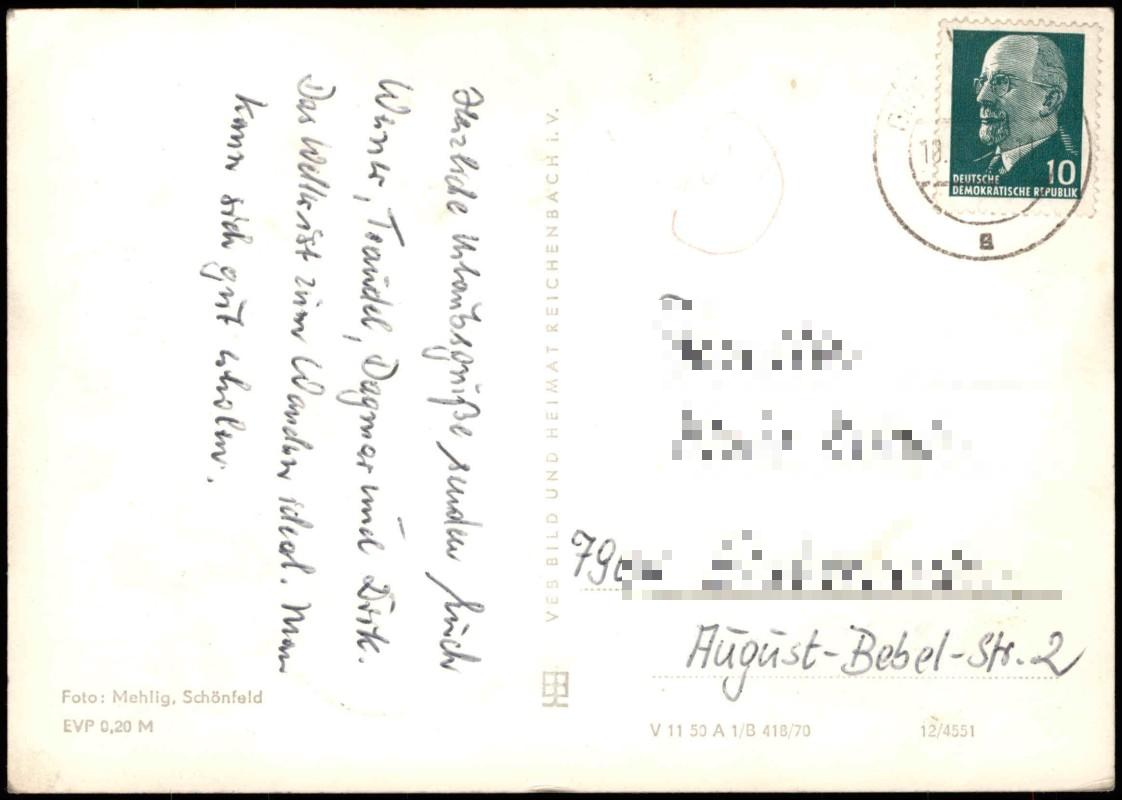 Herzliche Urlaubsgrüße senden Euch
Werner, Traudel, Dagmar und Dirk.
Das Wetter ist zum Wandern ideal. Man
kann sich gut erholen.
VEB BILD UND HEIMAT REICHENBACH I. V.
Foto: Mehlig, Schönfeld
EVP 0,20 M
10
DEUTSCHE
DEMOKRATISCHE REPUBLIK
18.
a
August-Bebel-Str. 2
V 11 50 A 1/B 418/70
12/4551